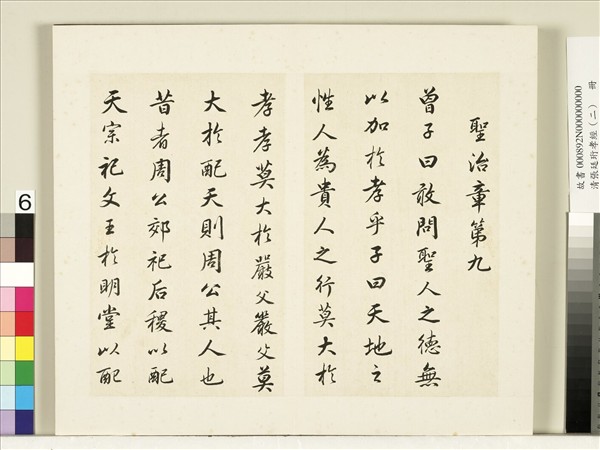 聖治章第九
曾子曰敢問聖人之德無
以加於孝乎子曰天地之
性人為貴人之行莫大於
孝孝莫大於嚴父嚴父莫
大於配天則周公其人也
昔者周公郊祀后稷以配
天宗祀文王於明堂以配
6
故書 000892N000000000
清張廷珩孝經(二) 冊